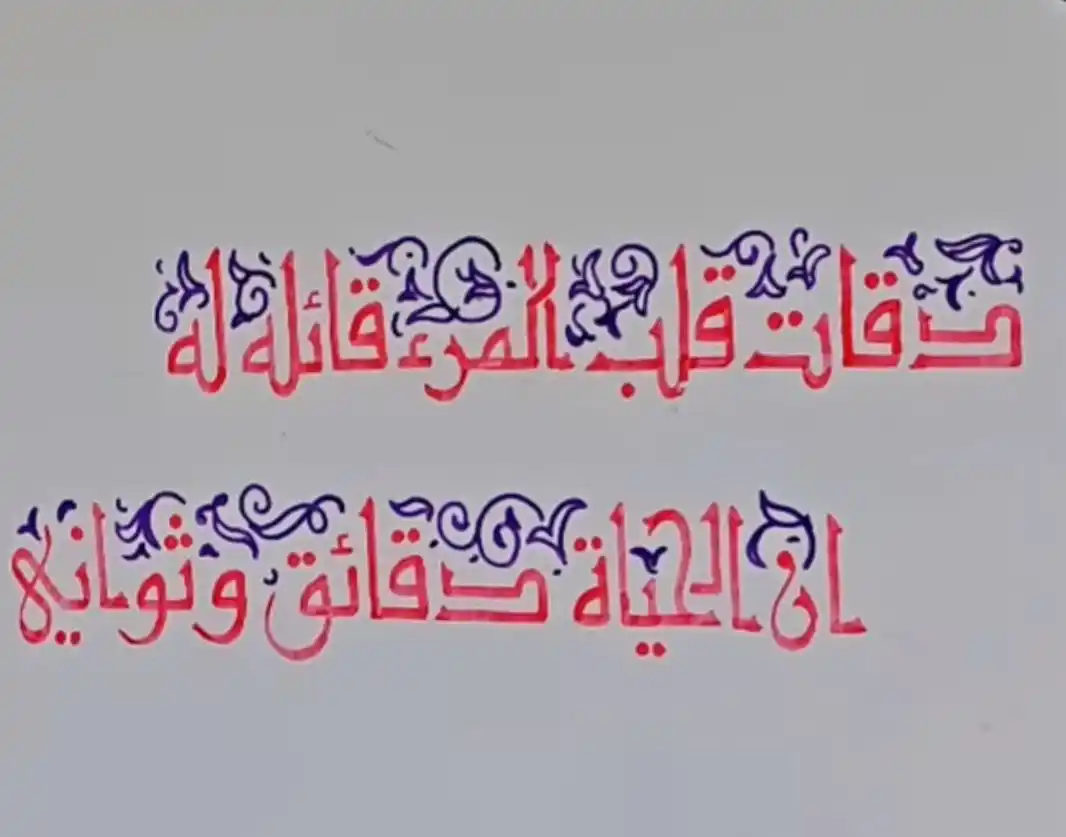 دقات قلب المرء قائلة له
ان الحياة دقائق وثواني